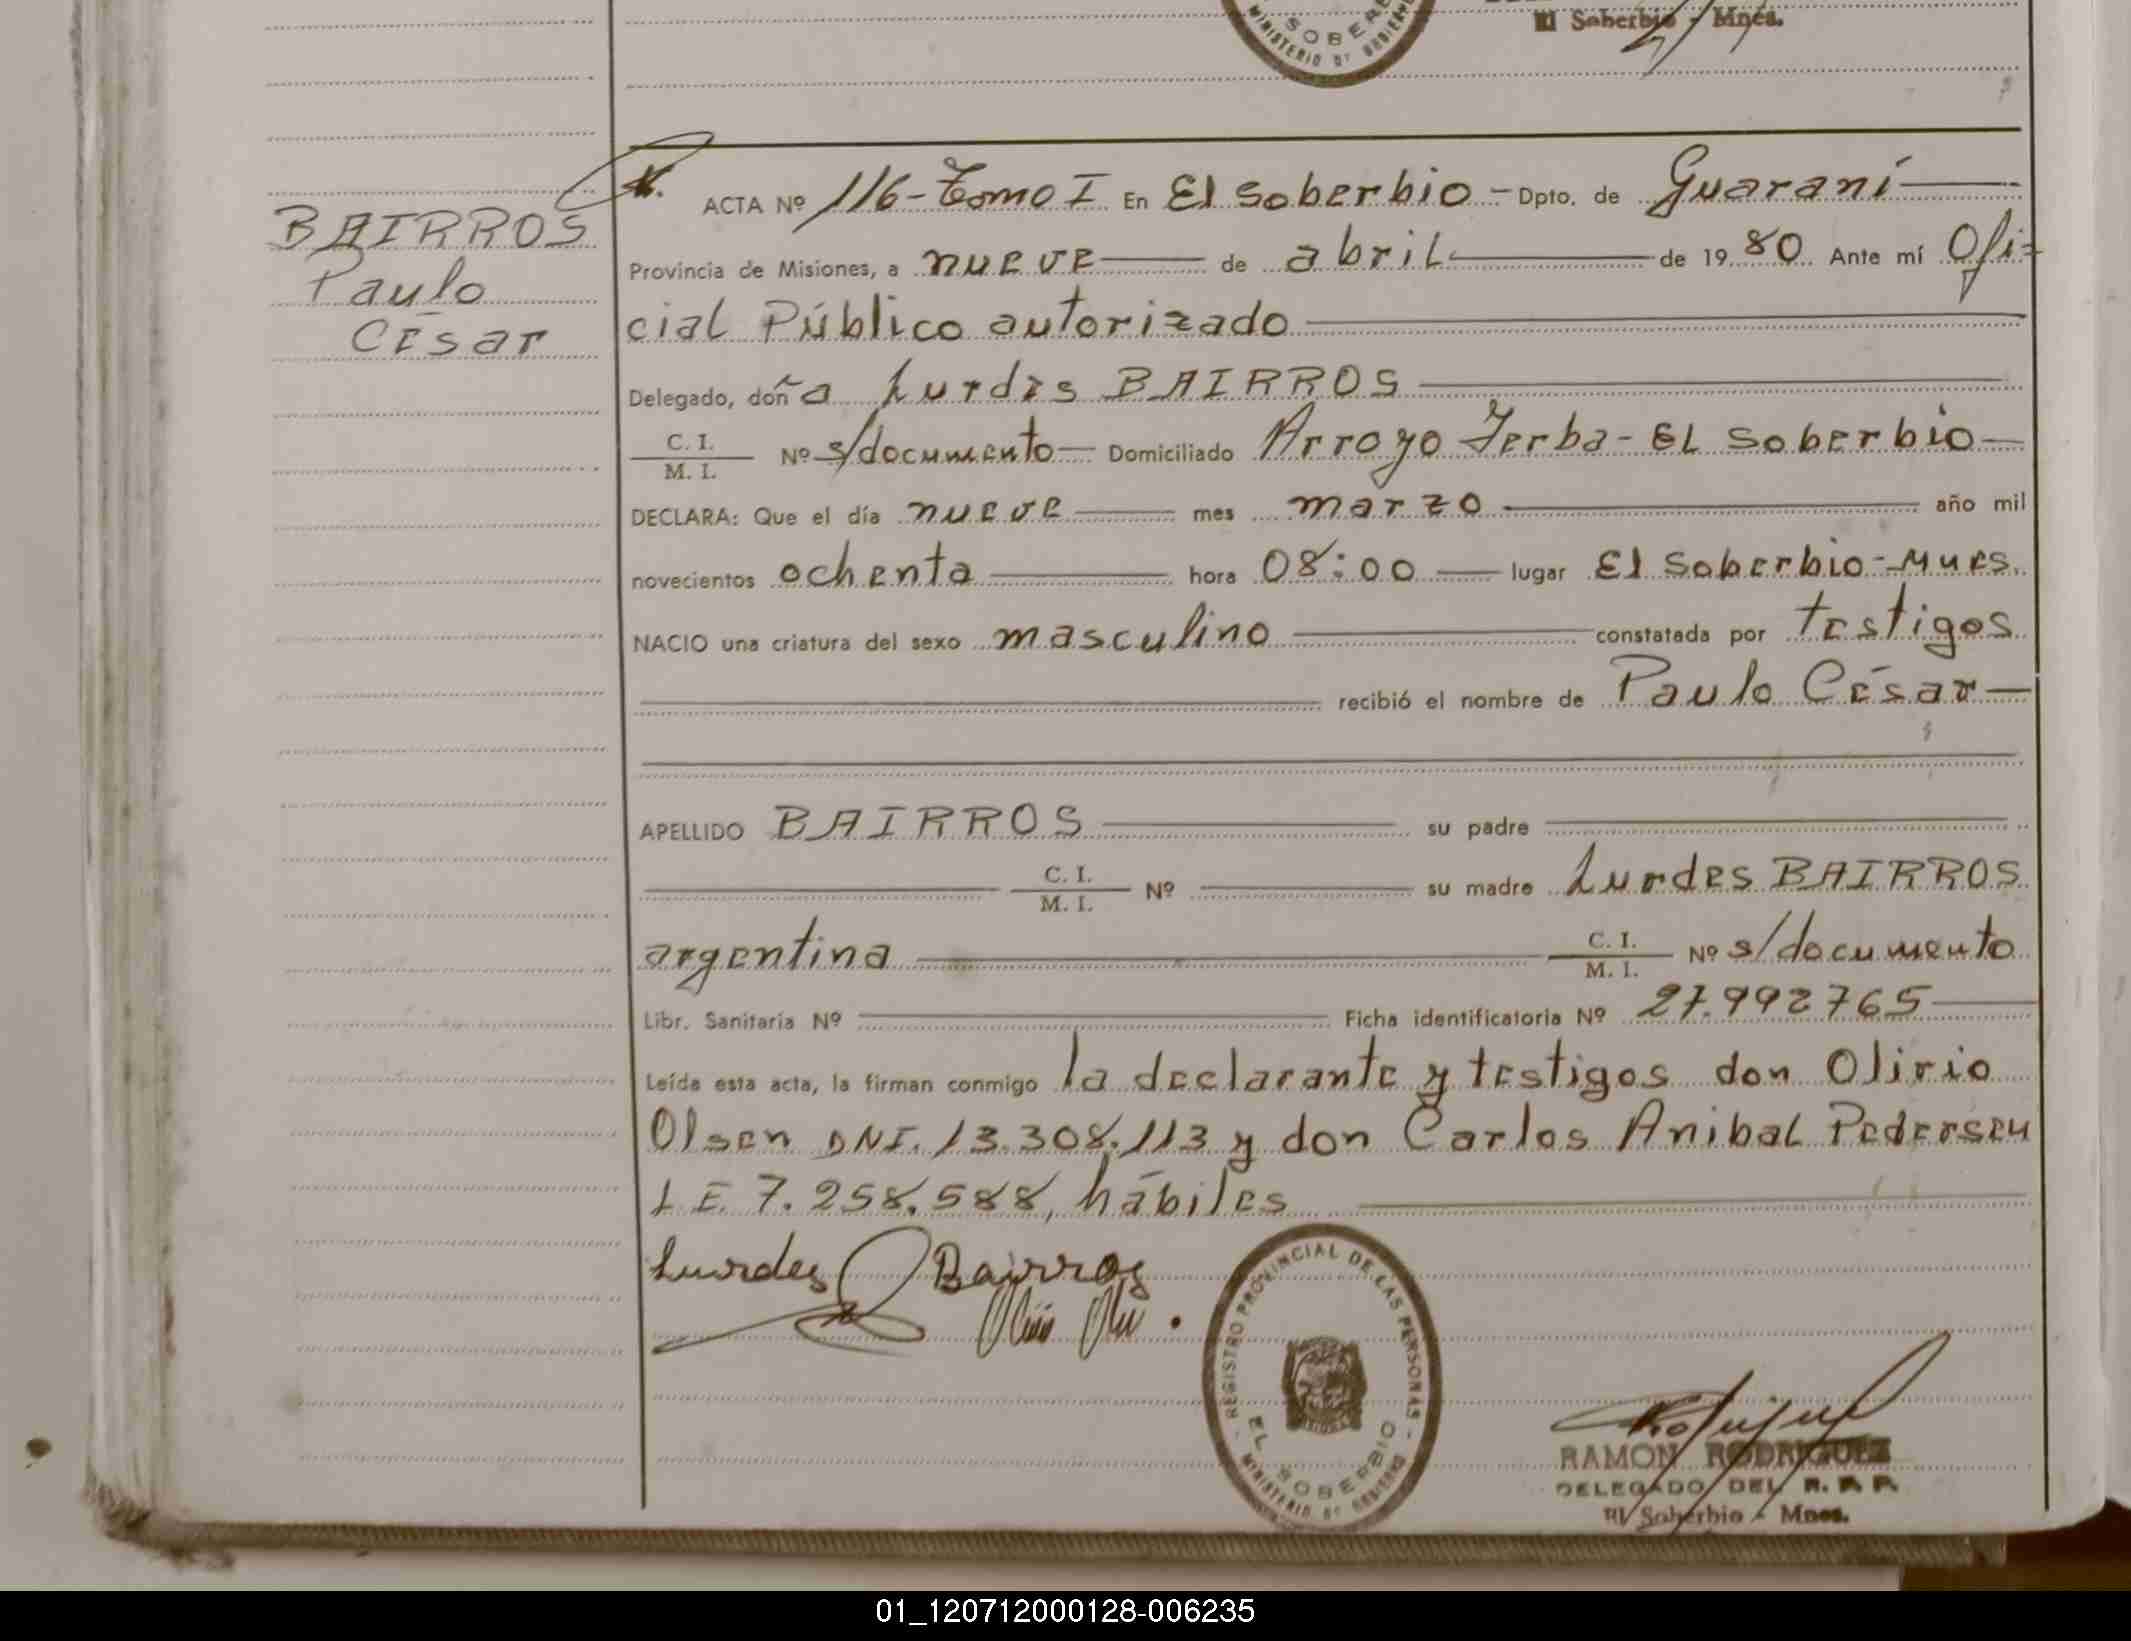 SOBERBIO
MINISTERIO DE GOBIERNO
El Soberbio - Mnes.
ACTA Nº 116-Tomo I En El Soberbio - Dpto. de Guaraní
BAIRROS
Paulo
César
Provincia de Misiones, a nueve de abril de 1980 Ante mí Ofi-
cial Público autorizado
Delegado, doña Lurdes BAIRROS
C. I.
M. I. Nº s/documento Domiciliado Arroyo Yerba - El Soberbio
DECLARA: Que el día nueve mes marzo año mil
novecientos ochenta hora 08:00 lugar El Soberbio - Mnes.
NACIO una criatura del sexo masculino constatada por testigos
recibió el nombre de Paulo César
APELLIDO BAIRROS su padre
C. I.
M. I. Nº su madre Lurdes BAIRROS
argentina C. I.
M. I. Nº s/documento
Libr. Sanitaria Nº Ficha identificatoria Nº 27.992765
Leída esta acta, la firman conmigo la declarante y testigos don Olirio
Olsen DNI. 13.308.113 y don Carlos Anibal Pedersen
L E. 7.258.588, hábiles
Lurdes Bairros
REGISTRO PROVINCIAL DE LAS PERSONAS
EL SOBERBIO
MINISTERIO DE GOBIERNO
RAMON RODRIGUEZ
DELEGADO DEL R. P. P.
El Soberbio - Mnes.
01_120712000128-006235